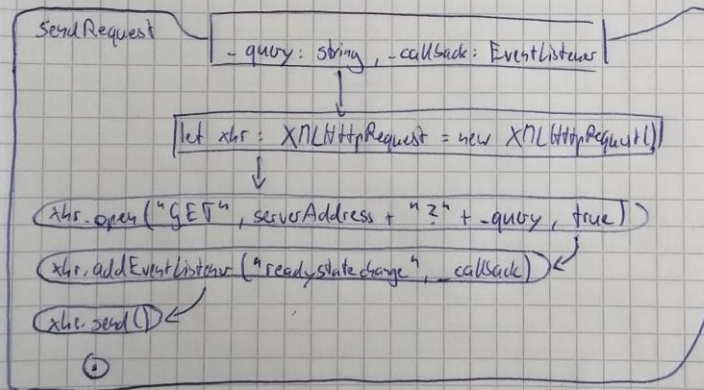 sendRequest
_query: string, _callback: EventListener
let xhr: XMLHttpRequest = new XMLHttpRequest()
xhr.open("GET", serverAddress + "?" + _query, true)
xhr.addEventListener("readystatechange", _callback)
xhr.send()